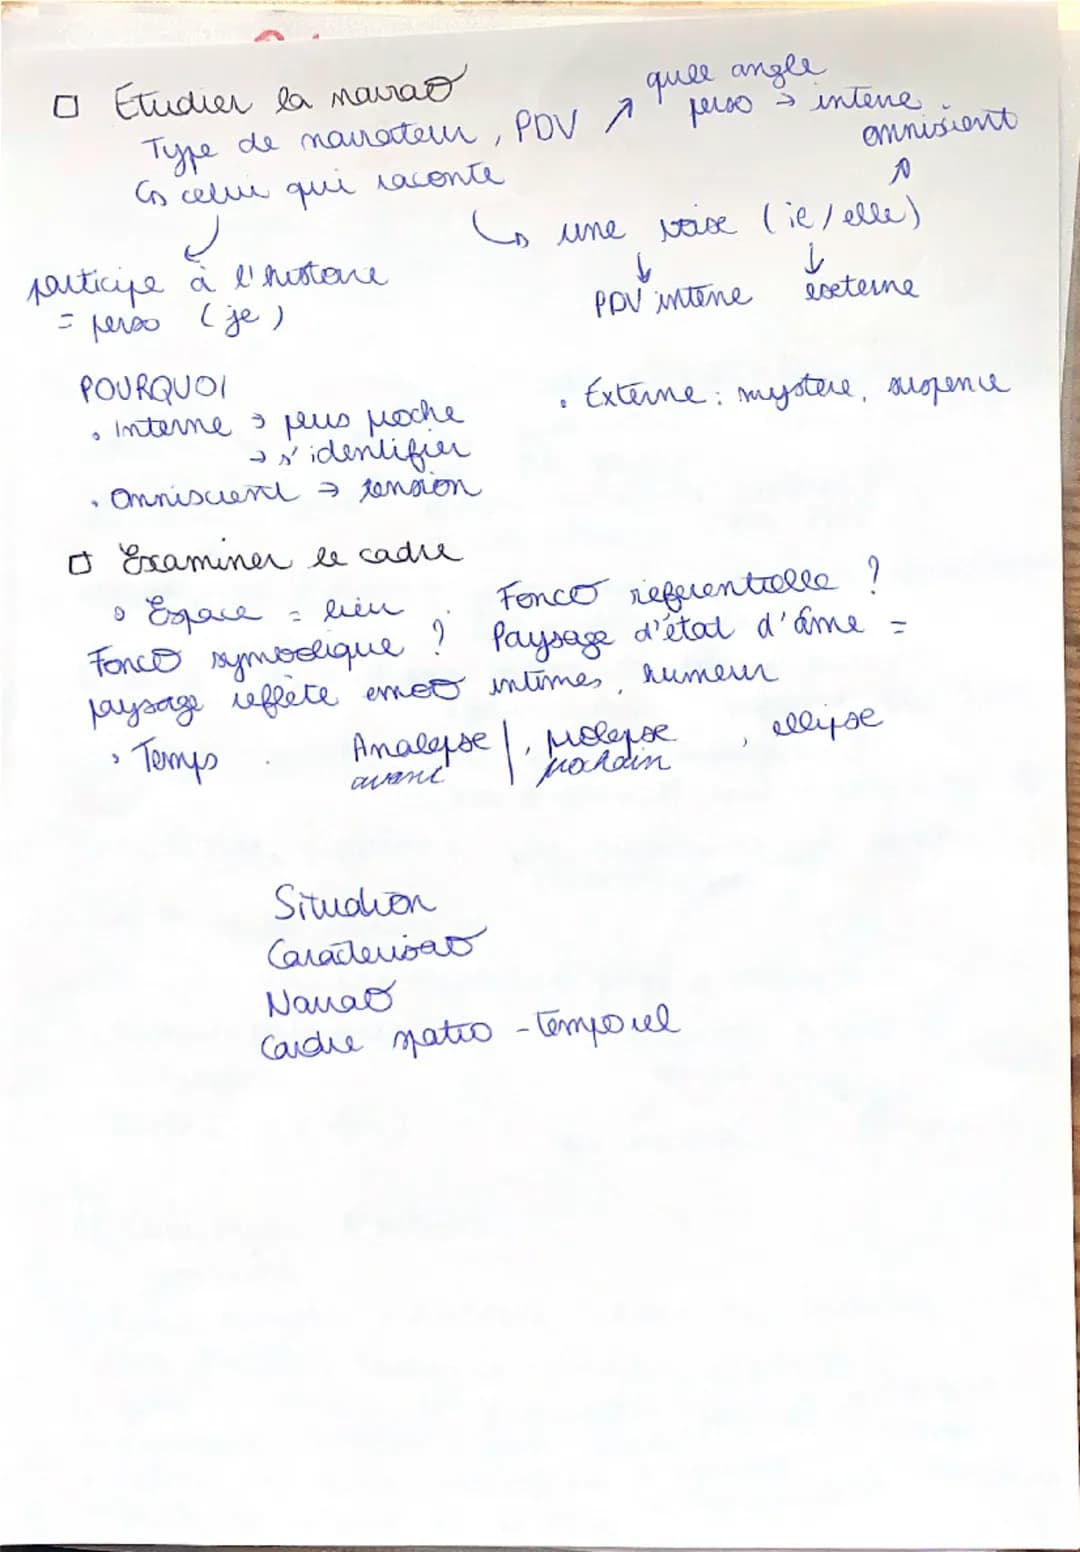 □ Étudier la narrao
quel angle
Type de narrateur, PDV ↗ perso → interne
omniscient
↳ celui qui raconte
↳ une voix (il/elle)
participe à l'histoire
= perso (je)
PDV interne externe
POURQUOI
• Interne → plus proche
→ s'identifier
• Externe : mystère, suspence
• Omniscient → tension
□ Examiner le cadre
• Espace = lieu. Foncto référentielle ?
Foncto symbolique ? Paysage d'état d'âme =
paysage reflète emoo intimes, humeur
• Temps. Analepse |, prolepse, ellipse
avant | prochain
Situation
Caractérisao
Narrao
Cadre spatio-temporel